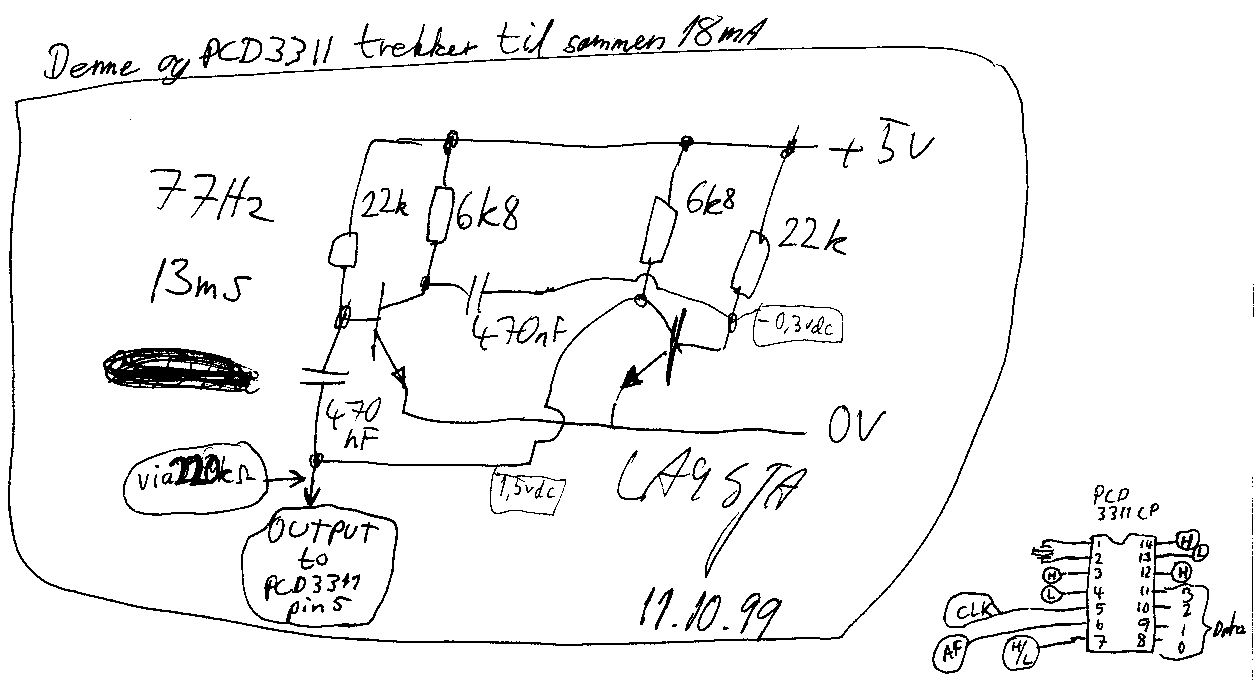 Denne og PCD3311 trekker til sammen 18mA
+5V
77Hz
22k
6k8
6k8
22k
13ms
470nF
-0,3vdc
470
nF
0V
via 220kΩ
1,5vdc
LA9SJA
OUTPUT
to
PCD3311
pin 5
11.10.99
PCD
3311CP
1 14 H
2 13 L
H 3 12 H
L 4 11 3
CLK 5 10 2
AF 6 9 1
H/L 7 8 0
Data